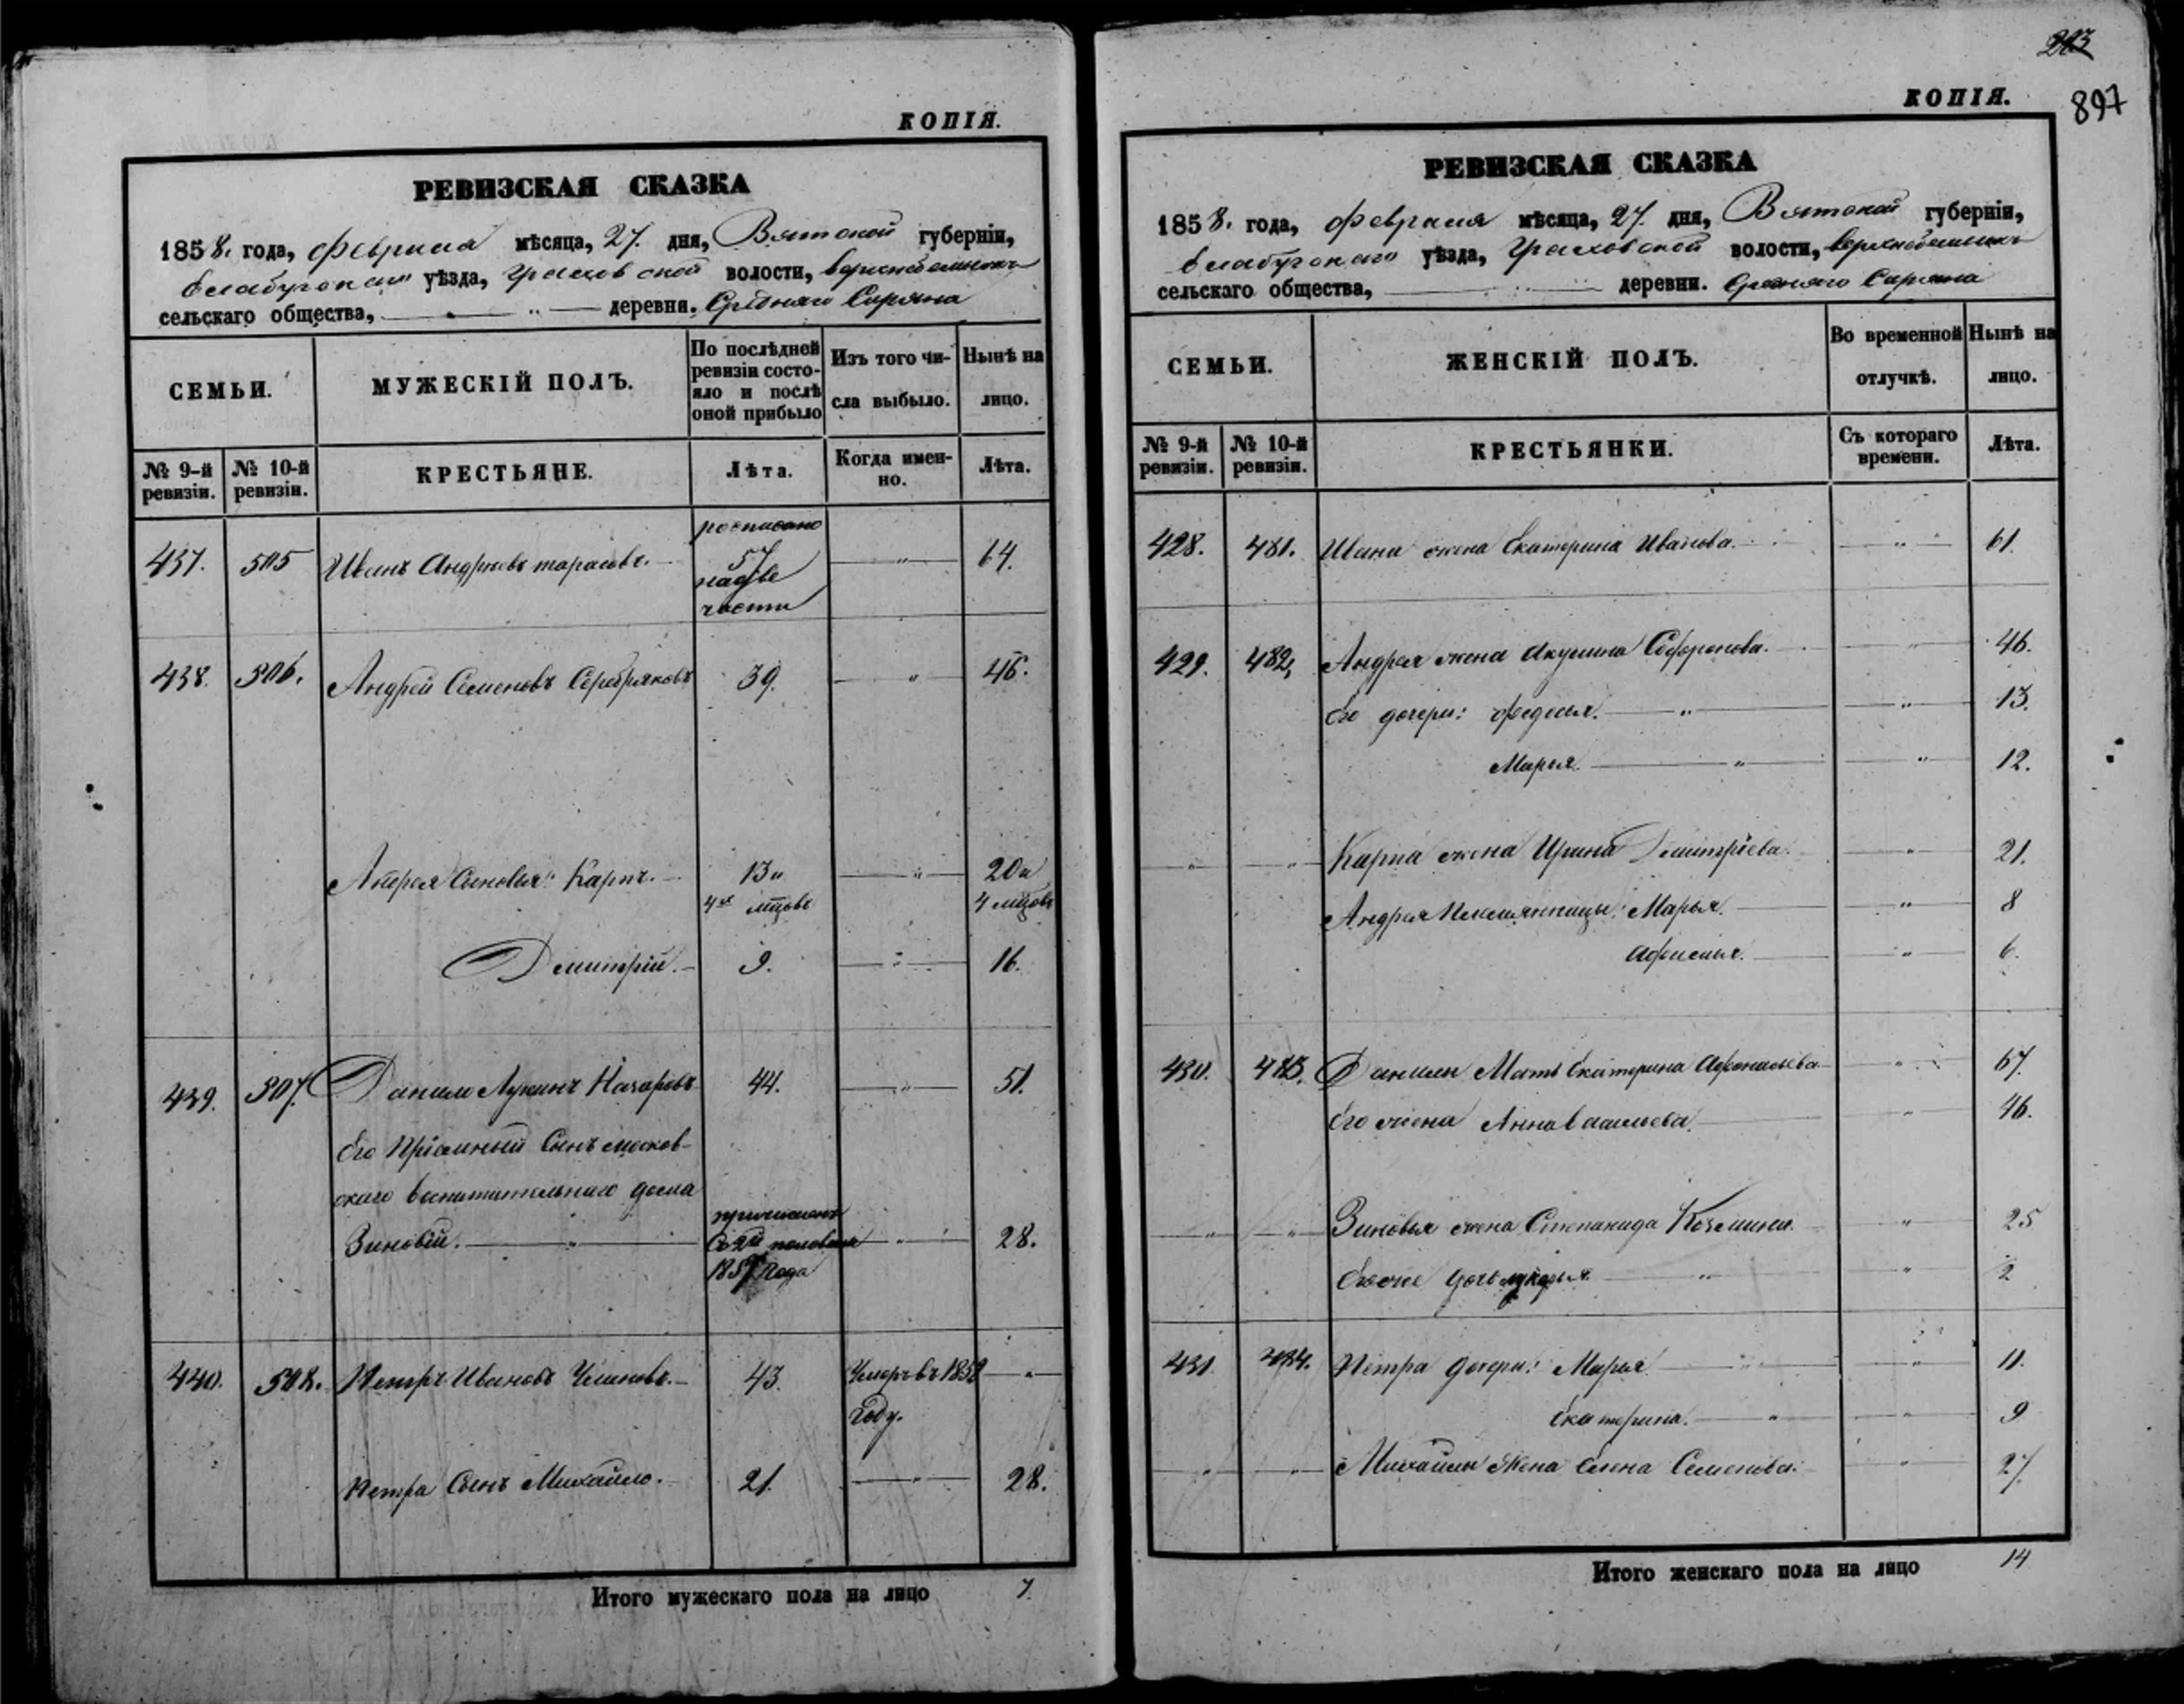 КОПІЯ.
РЕВИЗСКАЯ СКАЗКА
1858. года, февраля мѣсяца, 27. дня, Вятской губерніи,
Елабугскаго уѣзда, Граховской волости,
сельскаго общества, — " — деревни. Средняго Саряма
СЕМЬИ.
МУЖЕСКІЙ ПОЛЪ.
По послѣдней ревизіи состояло и послѣ оной прибыло
Изъ того числа выбыло.
Нынѣ на лицо.
№ 9-й ревизіи.
№ 10-й ревизіи.
КРЕСТЬЯНЕ.
Лѣта.
Когда именно.
Лѣта.
росписано
437. 505 Иванъ Андреевъ Тарасовъ. 57 — " — 64.
на две
части
438. 506. Андрей Семеновъ Серебряковъ 39. — " — 46.
Андрея Сыновья: Карпъ. 13 " — " — 20 и
4хъ мцовъ 4 мцовъ
Дмитрій. 9. — " — 16.
439. 507. Данило Лукинъ Назаровъ 44. — " — 51.
Его Пріемный Сынъ москов-
скаго воспитательнаго дома
причисленъ
Зиновій. — " — Со 2й половины — " — 28.
1857 года
440. 508. Петръ Ивановъ 43. Умеръ въ 1852 — " —
году.
Петра Сынъ Михайло. 21. — " — 28.
Итого мужескаго пола на лицо 7.
203
897
КОПІЯ.
РЕВИЗСКАЯ СКАЗКА
1858. года, февраля мѣсяца, 27. дня, Вятской губерніи,
Елабугскаго уѣзда, Граховской волости,
сельскаго общества, — " — деревни. Средняго Саряма
СЕМЬИ.
ЖЕНСКІЙ ПОЛЪ.
Во временной отлучкѣ.
Нынѣ на лицо.
№ 9-й ревизіи.
№ 10-й ревизіи.
КРЕСТЬЯНКИ.
Съ котораго времени.
Лѣта.
428. 481. Ивана жена Екатерина Иванова. — " — 61.
429. 482. Андрея жена Акулина Софронова. — " — 46.
Его дочери: Федосья. — " — — " — 13.
Марья. — " — — " — 12.
— " — — " — Карпа жена Ирина Дмитріева. — " — 21.
Андрея Племянницы: Марья. — " — 8
Афимья. — " — 6.
430. 483. Данилы Мать Екатерина Афонасьева — " — 67.
Его жена Анна Васильева. — " — 46.
— " — — " — Зиновья жена Степанида Козмина. — " — 25
Его же дочь Лукерья. — " — — " — 2
431. 484. Петра дочери: Марья — " — — " — 11.
Екатерина. — " — — " — 9
— " — — " — Михайлы Жена Елена Семенова. — " — 27.
Итого женскаго пола на лицо 14